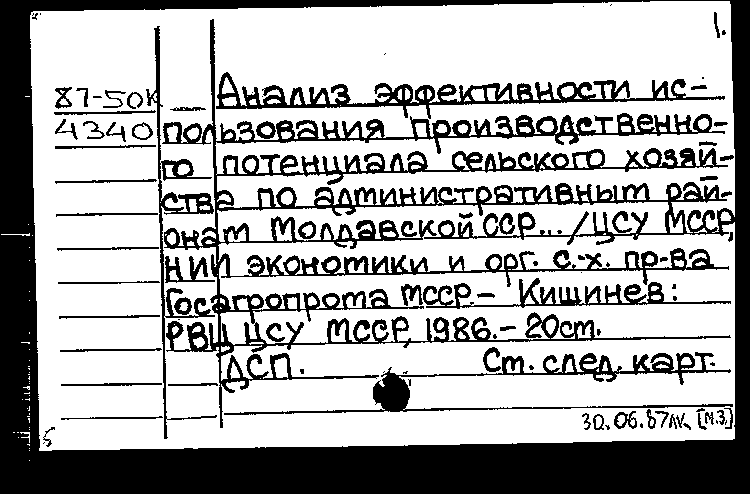 1.
87-50К Анализ эффективности ис-
4340 пользования производственно-
го потенциала сельского хозяй-
ства по административным рай-
онам Молдавской ССР... /ЦСУ МССР,
НИИ экономики и орг. с.-х. пр-ва
Госагропрома МССР.- Кишинев:
РВЦ ЦСУ МССР, 1986.- 20см.
ДСП. Ст. след. карт.
30.06.87лк [М.З.]
5